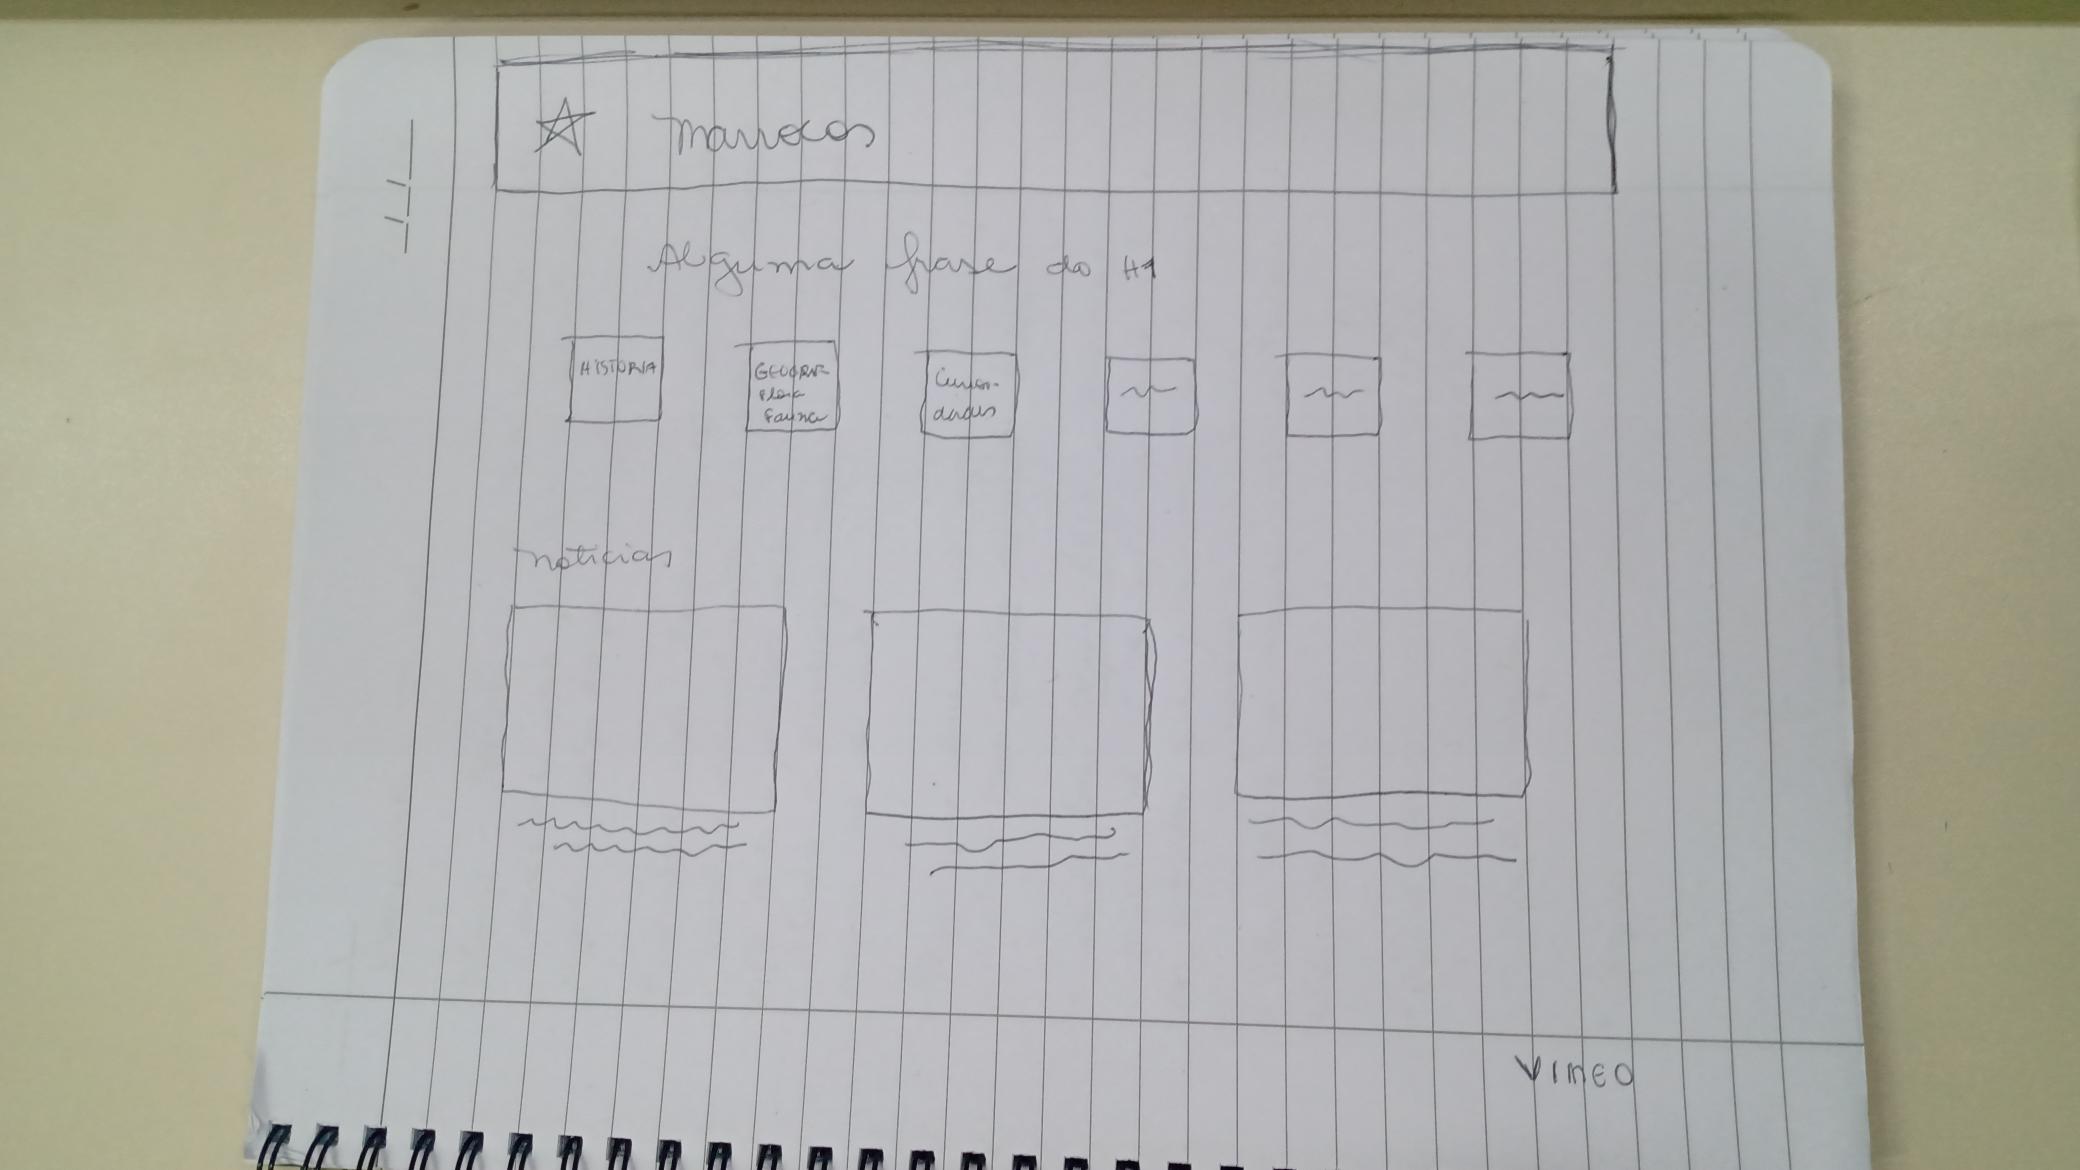 Marrocos
Alguma frase do H1
HISTORIA
GEOGRAF
Flora
Fauna
Curio-
dades
noticias
VIMEO